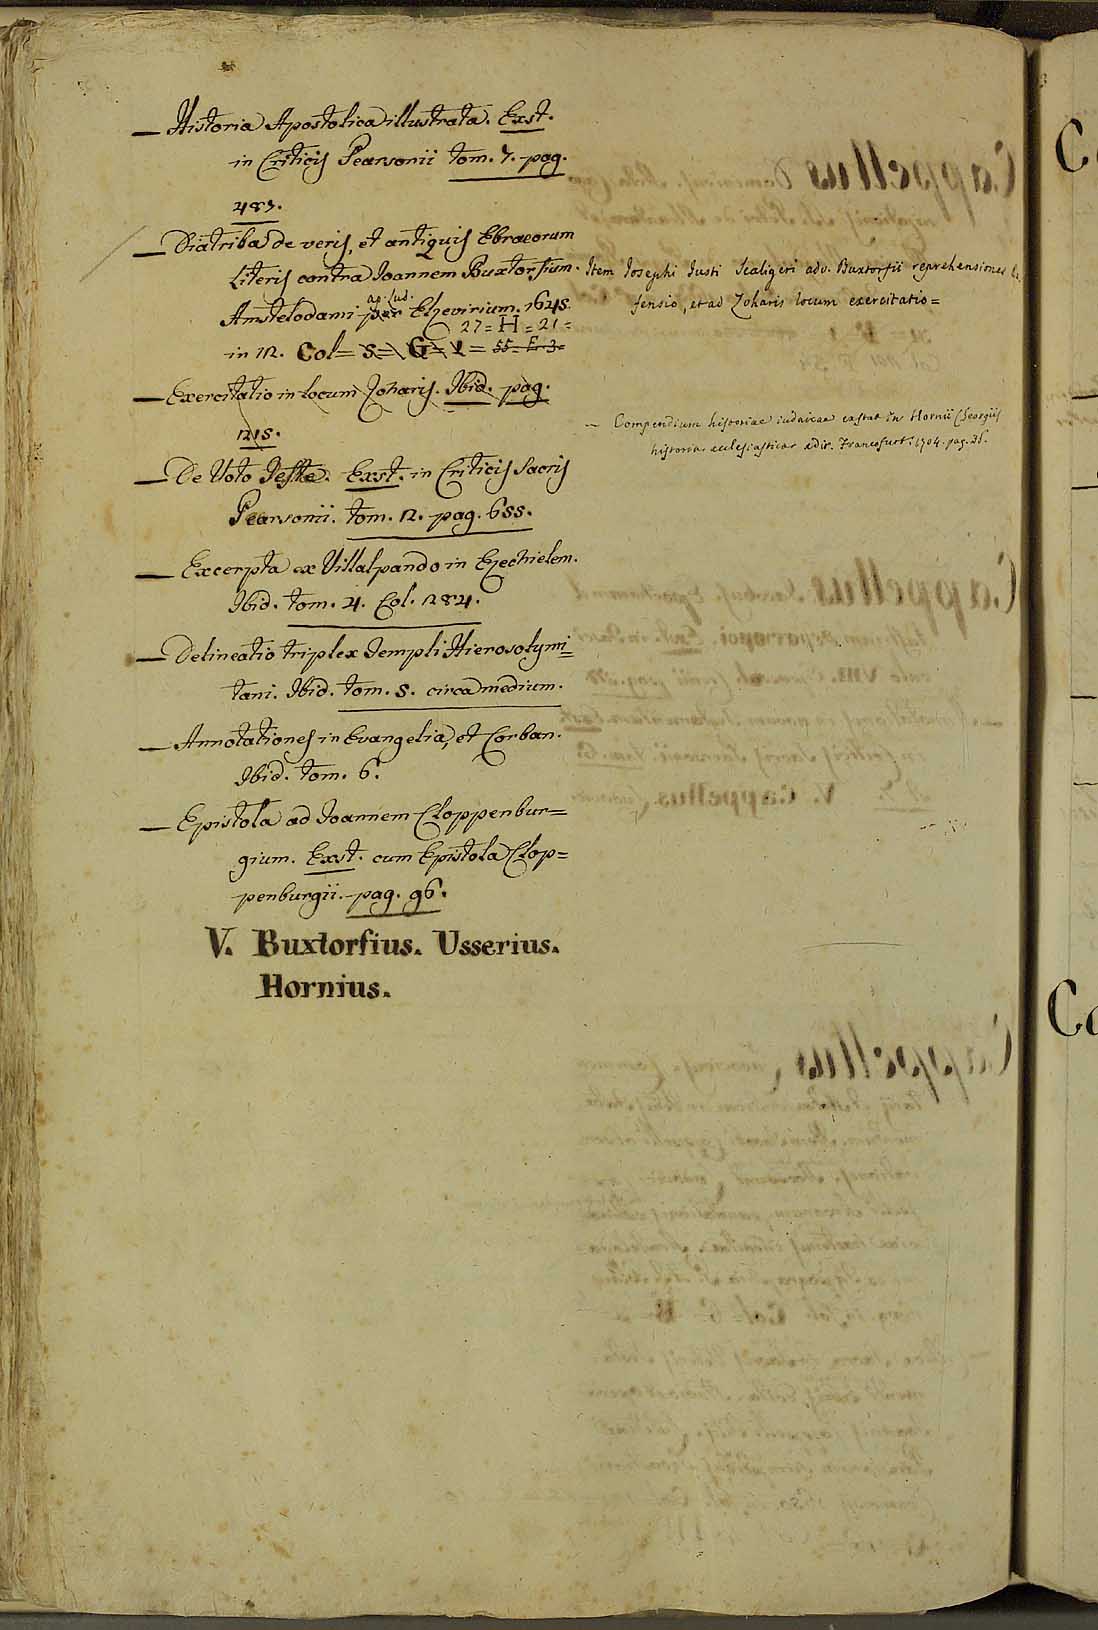 — Historia Apostolica illustrata. Exst.
in Criticis Pearsonii tom. 7. pag.
487.
— Diatriba de veris, et antiquis Ebraeorum
Literis contra Joannem Buxtorfium.
Amstelodami per ap. Lud. Elzevirium. 1645.
27 = H = 21 =
in 12. Col = S = G = 1 = 55 = E. 3 =
— Exercitatio in locum Zoharis. Ibid. pag.
1215.
— De Voto Jeftae. Exst. in Criticis Sacris
Pearsonii. tom. 12. pag. 655.
— Excerpta ex Villalpando in Ezechielem.
Ibid. tom. 4. Col. 1284.
— Delineatio triplex Templi Hierosolymi=
tani. Ibid. tom. 5. circa medium.
— Annotationes in Evangelia, et Corban.
Ibid. tom. 6.
— Epistola ad Joannem Cloppenbur=
gium. Exst. cum Epistola Clop=
penburgii. pag. 96.
V. Buxtorfius. Usserius.
Hornius.
Item Josephi Justi Scaligeri adv. Buxtorfii reprehensiones de
fensio, et ad Zoharis locum exercitatio =
— Compendium historiae iudaicae exstat in Hornii Georgii
historia ecclesiastica edit. Francofurt. 1704. pag. 35.